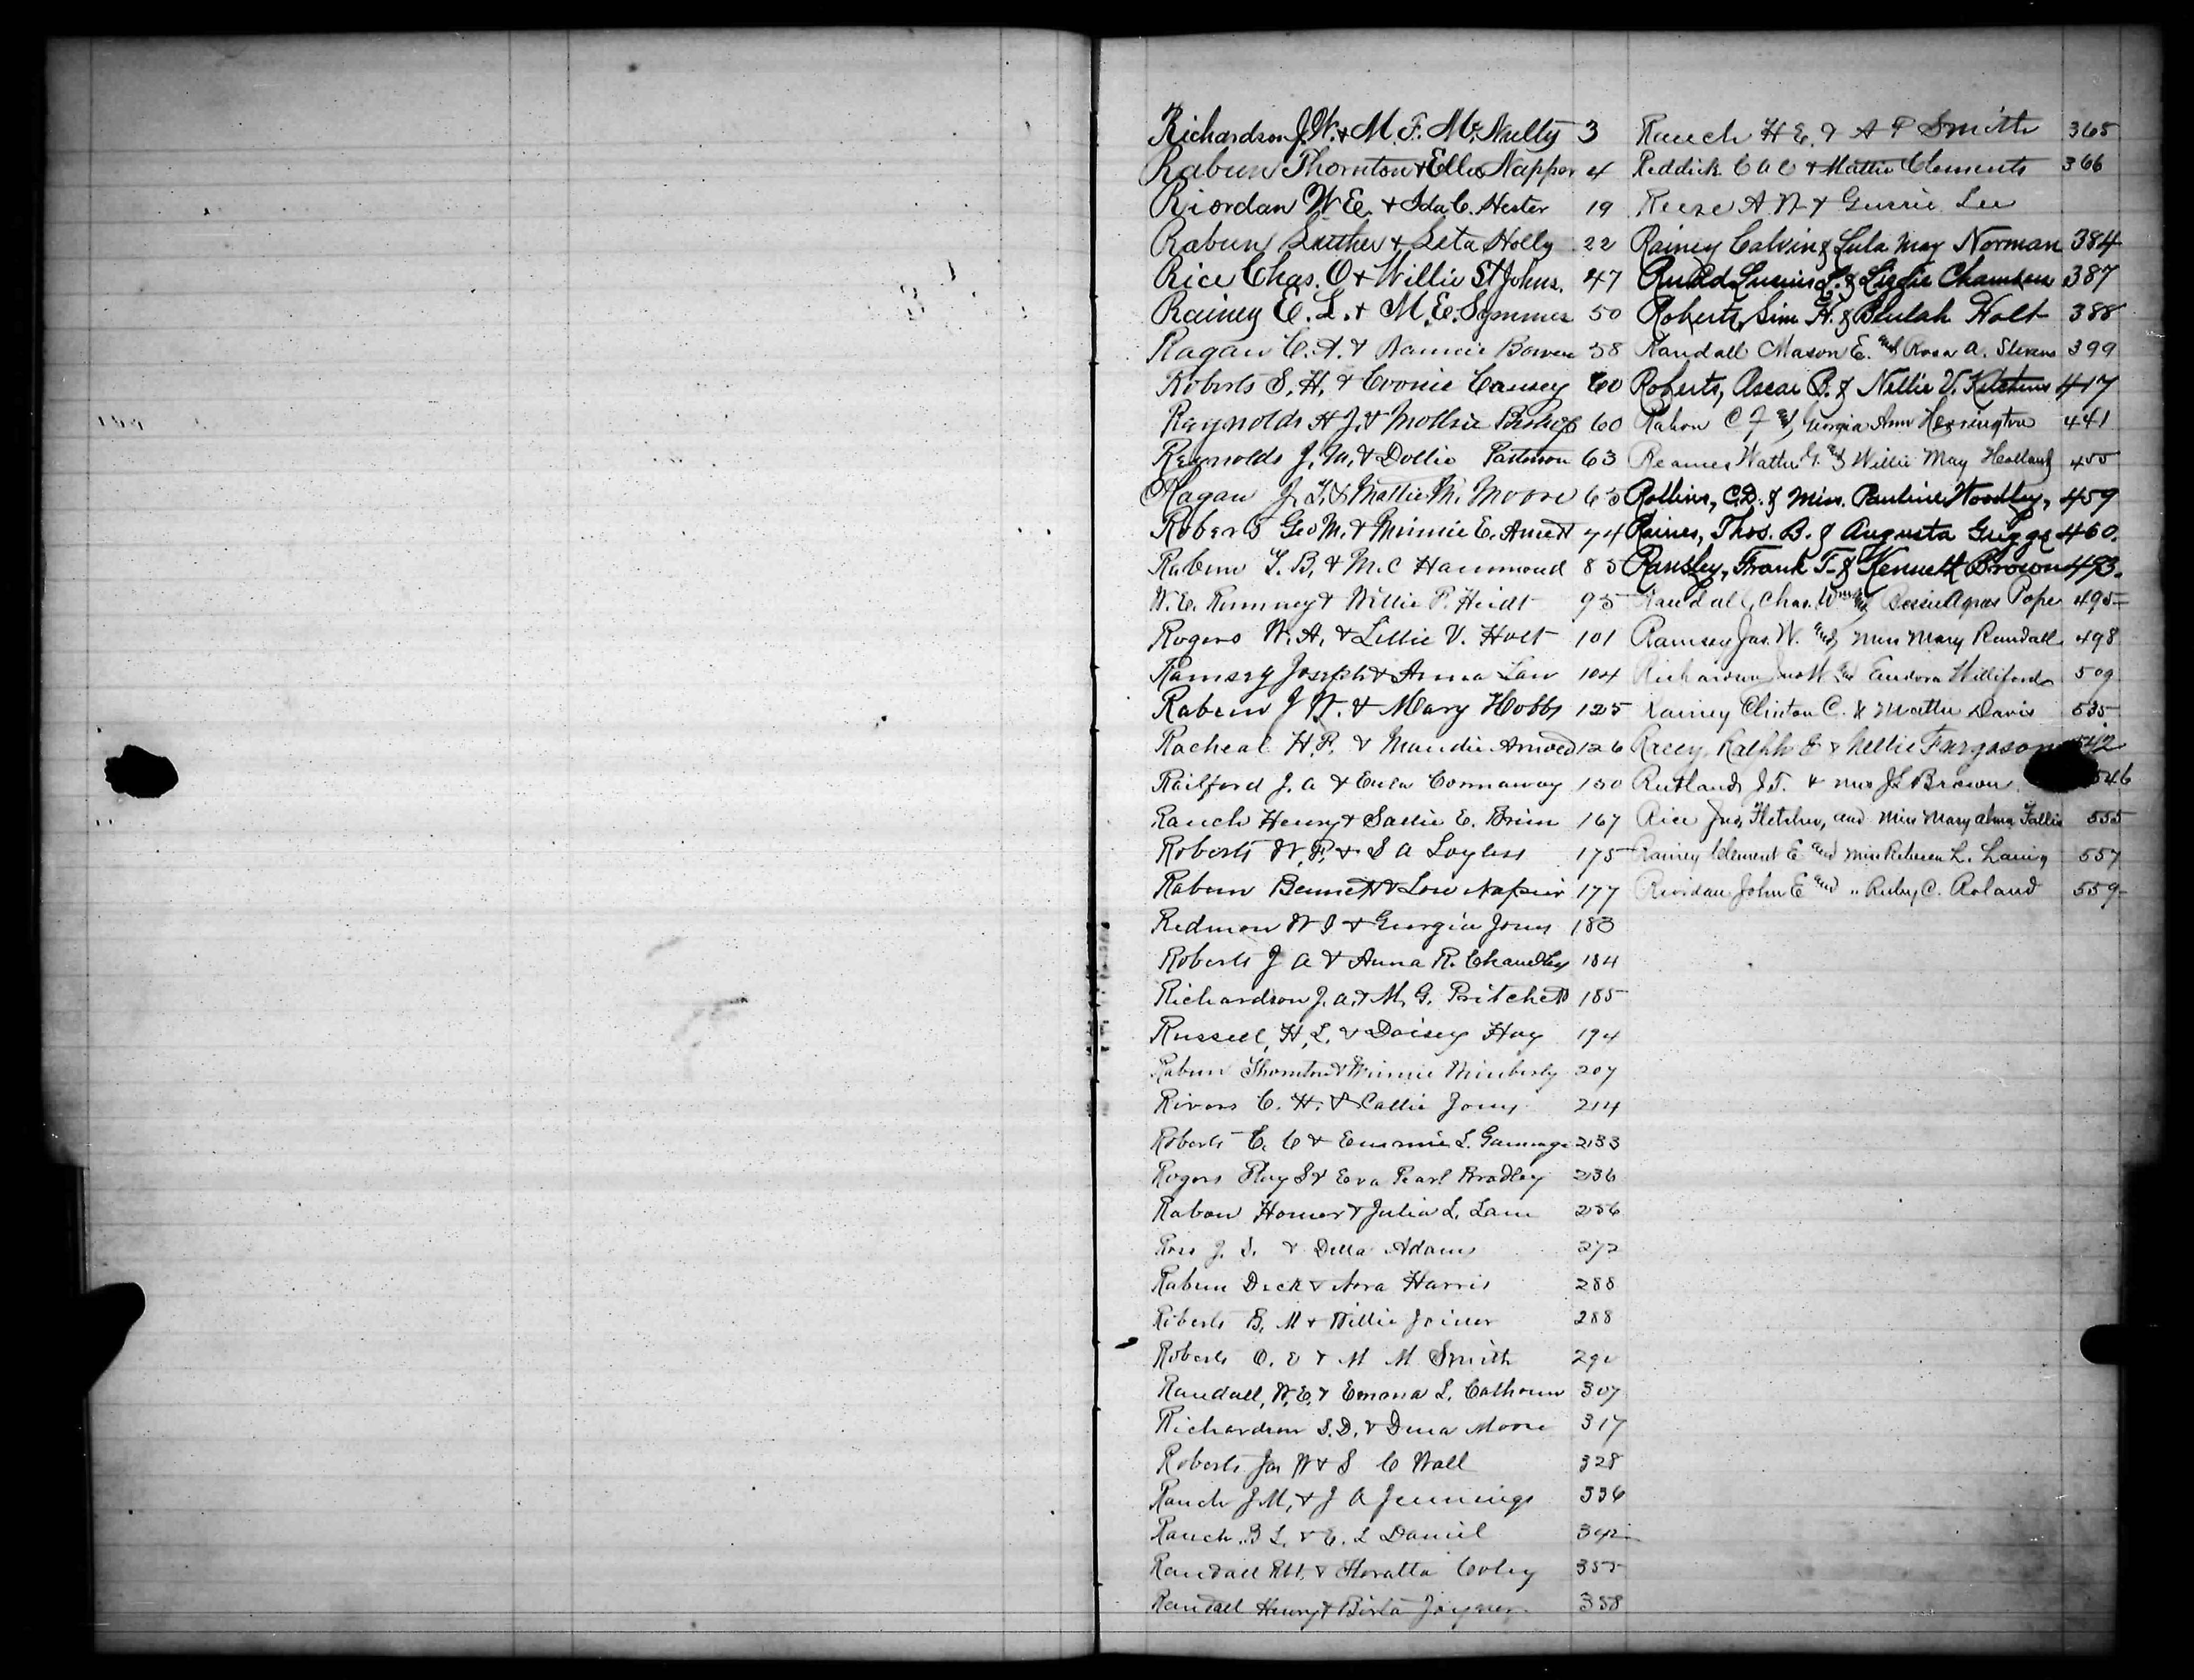 Richardson J. W. & M. F. McNulty 3
Rabun Thornton & Ella Napper 4
Riordan W E. & Ida C. Hester 19
Rabun Luther & Leta Holly 22
Rice Chas. O & Willie St Johns. 47
Rainey E. L. & M. E. Symmes 50
Ragan C. A. & Nannie Bowen 58
Roberts S. H. & Evonie Causey 60
Raynolds H J. & Mollie Bishop 60
Reynolds J. M. & Dollie 63
Ragan J. T. & Mattie M. Moore 65
Roberts Geo M. & Minnie E. Amett 74
Rabun T. B. & M. C Hammond 85
W. E. Rumney & Willie P. Heidt 95
Rogers W. A. & Lillie V. Holt 101
Ramsey Joseph & Anna Law 104
Rabun J W. & Mary Hobbs 125
Racheal H. P. & Maudie Arnold 126
Railford J. A & Eula Connaway 150
Rauch Henry & Sallie E. Brim 167
Roberts W. P. & S A Layless 175
Rabun Bennett & Lou Napier 177
Redmon W I & Georgia Jones 183
Roberts J A & Anna R. Chandley 184
Richardson J. A. & M. G. Pritchett 185
Russell, H. L. & Daisey Hay 194
Rabun Thornton & Minnie Wimberly 207
Rivers C. H. & Callie Jones 214
Roberts E. C & L. Gammage 233
Rogers Ray S & Eva Pearl Bradley 236
Rabon Homer & Julia L. Lane 256
Ross J. S. & Della Adams 272
Rabun Dick & Nora Harris 288
Roberts B. M & Willie Joiner 288
Roberts O. E & M M Smith
Randall, W. E. & Emma L. Calhoun 307
Richardson S. D. & Dena Moore 317
Roberts Jas W & S C Wall 328
Rauch J. M. & J A Jennings 336
Rauch B L. & E. L Daniel 342
Randall Robt. & Coley 355
Randall Henry & Birta Joyner 358
Rauch H E. & A P Smith 365
Reddick C A C & Mattie Clements 366
Reese A. W & Gussie Lee
Rainey Calvin & Lula May Norman 384
Rudd Lucius L. & Lizzie 387
Roberts, Sim H. & Beulah Holt 388
Randall Mason E. and Rosa A. Stevens 399
Roberts, Oscar B. & Nellie V. Kitchens 417
Rahon C F and Georgia Ann Herrington 441
Reames Walter G. and Willie May Holland 455
Rollins, C. D. & Miss. Pauline Woodley, 459
Raines, Thos. B. & Augusta Griggs 460.
Ransley, Frank T. & Kennett Brown 493.
Randall, Chas. W and Bessie Agnes Pope 495
Ramsey Jas. W. and Miss Mary Randall 498
Richardson Jno W and Eudora Williford 509
Rainey Clinton C. & Mattie Davis 535
Racey Ralph E & Nellie Furgason 542
Rutland J. T. & Mrs J L Brown 546
Rice Jno. Fletcher, and Miss Mary Alma Fallis 555
Rainey Clement E and Miss Rebecca L. Laing 557
Riordan John E and " Ruby C. Roland 559